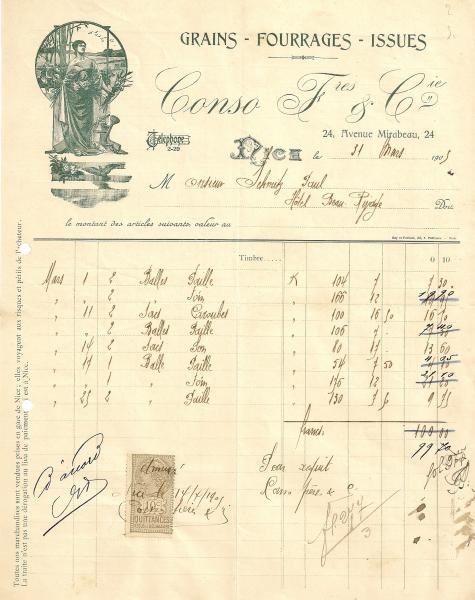 GRAINS - FOURRAGES - ISSUES
Conso Fres & Cie
24, Avenue Mirabeau, 24
Téléphone
2-29
Nice le 31 Mars 190
Monsieur Schmitz Paul
Hôtel Beau Rivage Doit
le montant des articles suivants, valeur au
Timbre 0 10
Mars 1 2 Balles Paille K 104 7 7 30
" " 2 " Foin 166 12
" 11 2 Sacs Caroubes 100 16 50 16 50
" " 2 Balles Paille 106 7 7 40
" 14 2 Sacs Son 80 17 13 60
" 17 1 Balle Paille 54 7 50 4 05
" " " " Foin 12
" 25 2 " Paille 130 7 50 9 75
francs 100 00
99 70
Pour acquit
D'accord
QUITTANCES
Toutes nos marchandises sont vendues prises en gare de Nice; elles voyagent aux risques et périls de l'acheteur.
La traite n'est pas une dérogation au lieu de paiement qui est à Nice.